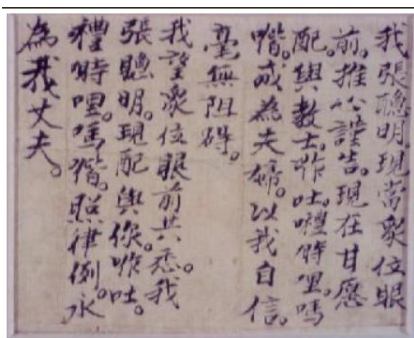 我張聰明現當眾位眼
前。推心謹告。現在甘愿
配與教士。咋吐。嚏時哩。嗎
喈。成為夫婦。以我自信。
毫無阻碍。
我望衆位眼前共悉。我
張聰明。現配與你。咋吐。
禮時哩。嗎喈。照律例。永
為我丈夫。